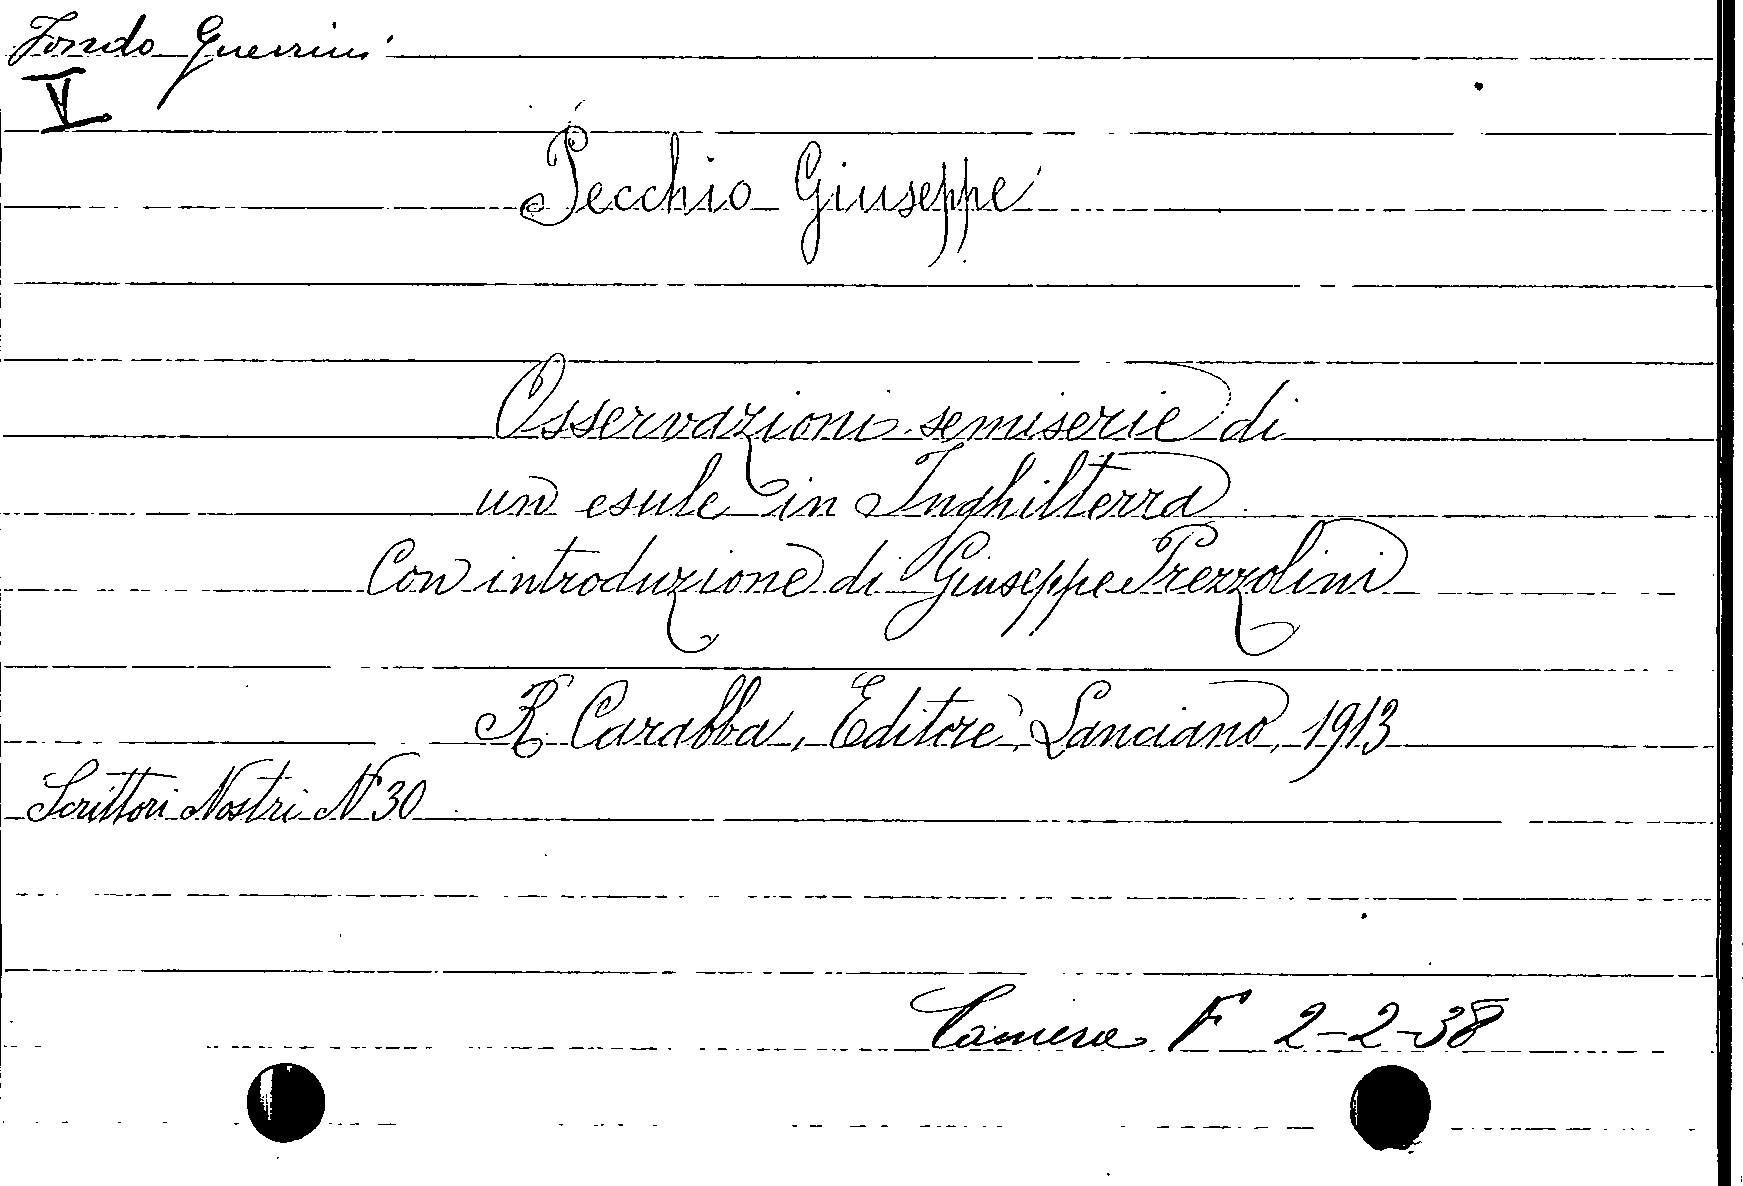 Fondo Guerrini
V
Pecchio Giuseppe
Osservazioni semiserie di
un esule in Inghilterra
Con introduzione di Giuseppe Prezzolini
R. Carabba, Editore, Lanciano, 1913
Scrittori Nostri N 30
Camera F 2-2-38